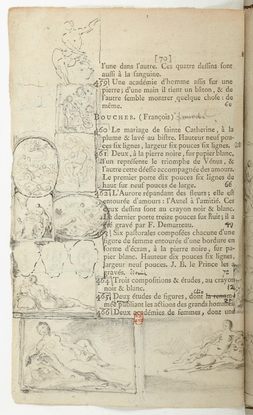 [70]
l'une dans l'autre. Ces quatre dessins sont
aussi à la sanguine.
459] Une académie d'homme assis sur une
pierre; d'une main il tient un bâton, & de
l'autre semble montrer quelque chose: de
même.
BOUCHER. (François)
460 Le mariage de sainte Catherine, à la
plume & lavé au bistre. Hauteur neuf pou-
ces six lignes, largeur six pouces six lignes.
461] Deux, à la pierre noire, sur papier blanc,
l'un représente le triomphe de Vénus, &
l'autre cette déesse accompagnée des amours.
Le premier porte dix pouces six lignes de
haut sur neuf pouces de large. 66
462] L'Aurore répandant des fleurs; elle est
entourée d'amours: l'Autel à l'amitié. Ces
deux dessins sont au crayon noir & blanc.
Le dernier porte treize pouces sur huit; il a
été gravé par F. Demarteau.
463] Six pastorales composées chacune d'une
figure de femme entourée d'une bordure en
forme d'écran, à la pierre noire, sur pa-
pier blanc. Hauteur dix pouces six lignes,
largeur neuf pouces. J. B. le Prince les a
gravés.
464] Trois compositions & études, au crayon
noir & blanc.
465] Deux études de figures, dont la renom-
mée publiant les actions des grands hommes.
466] Deux académies de femmes, dont une